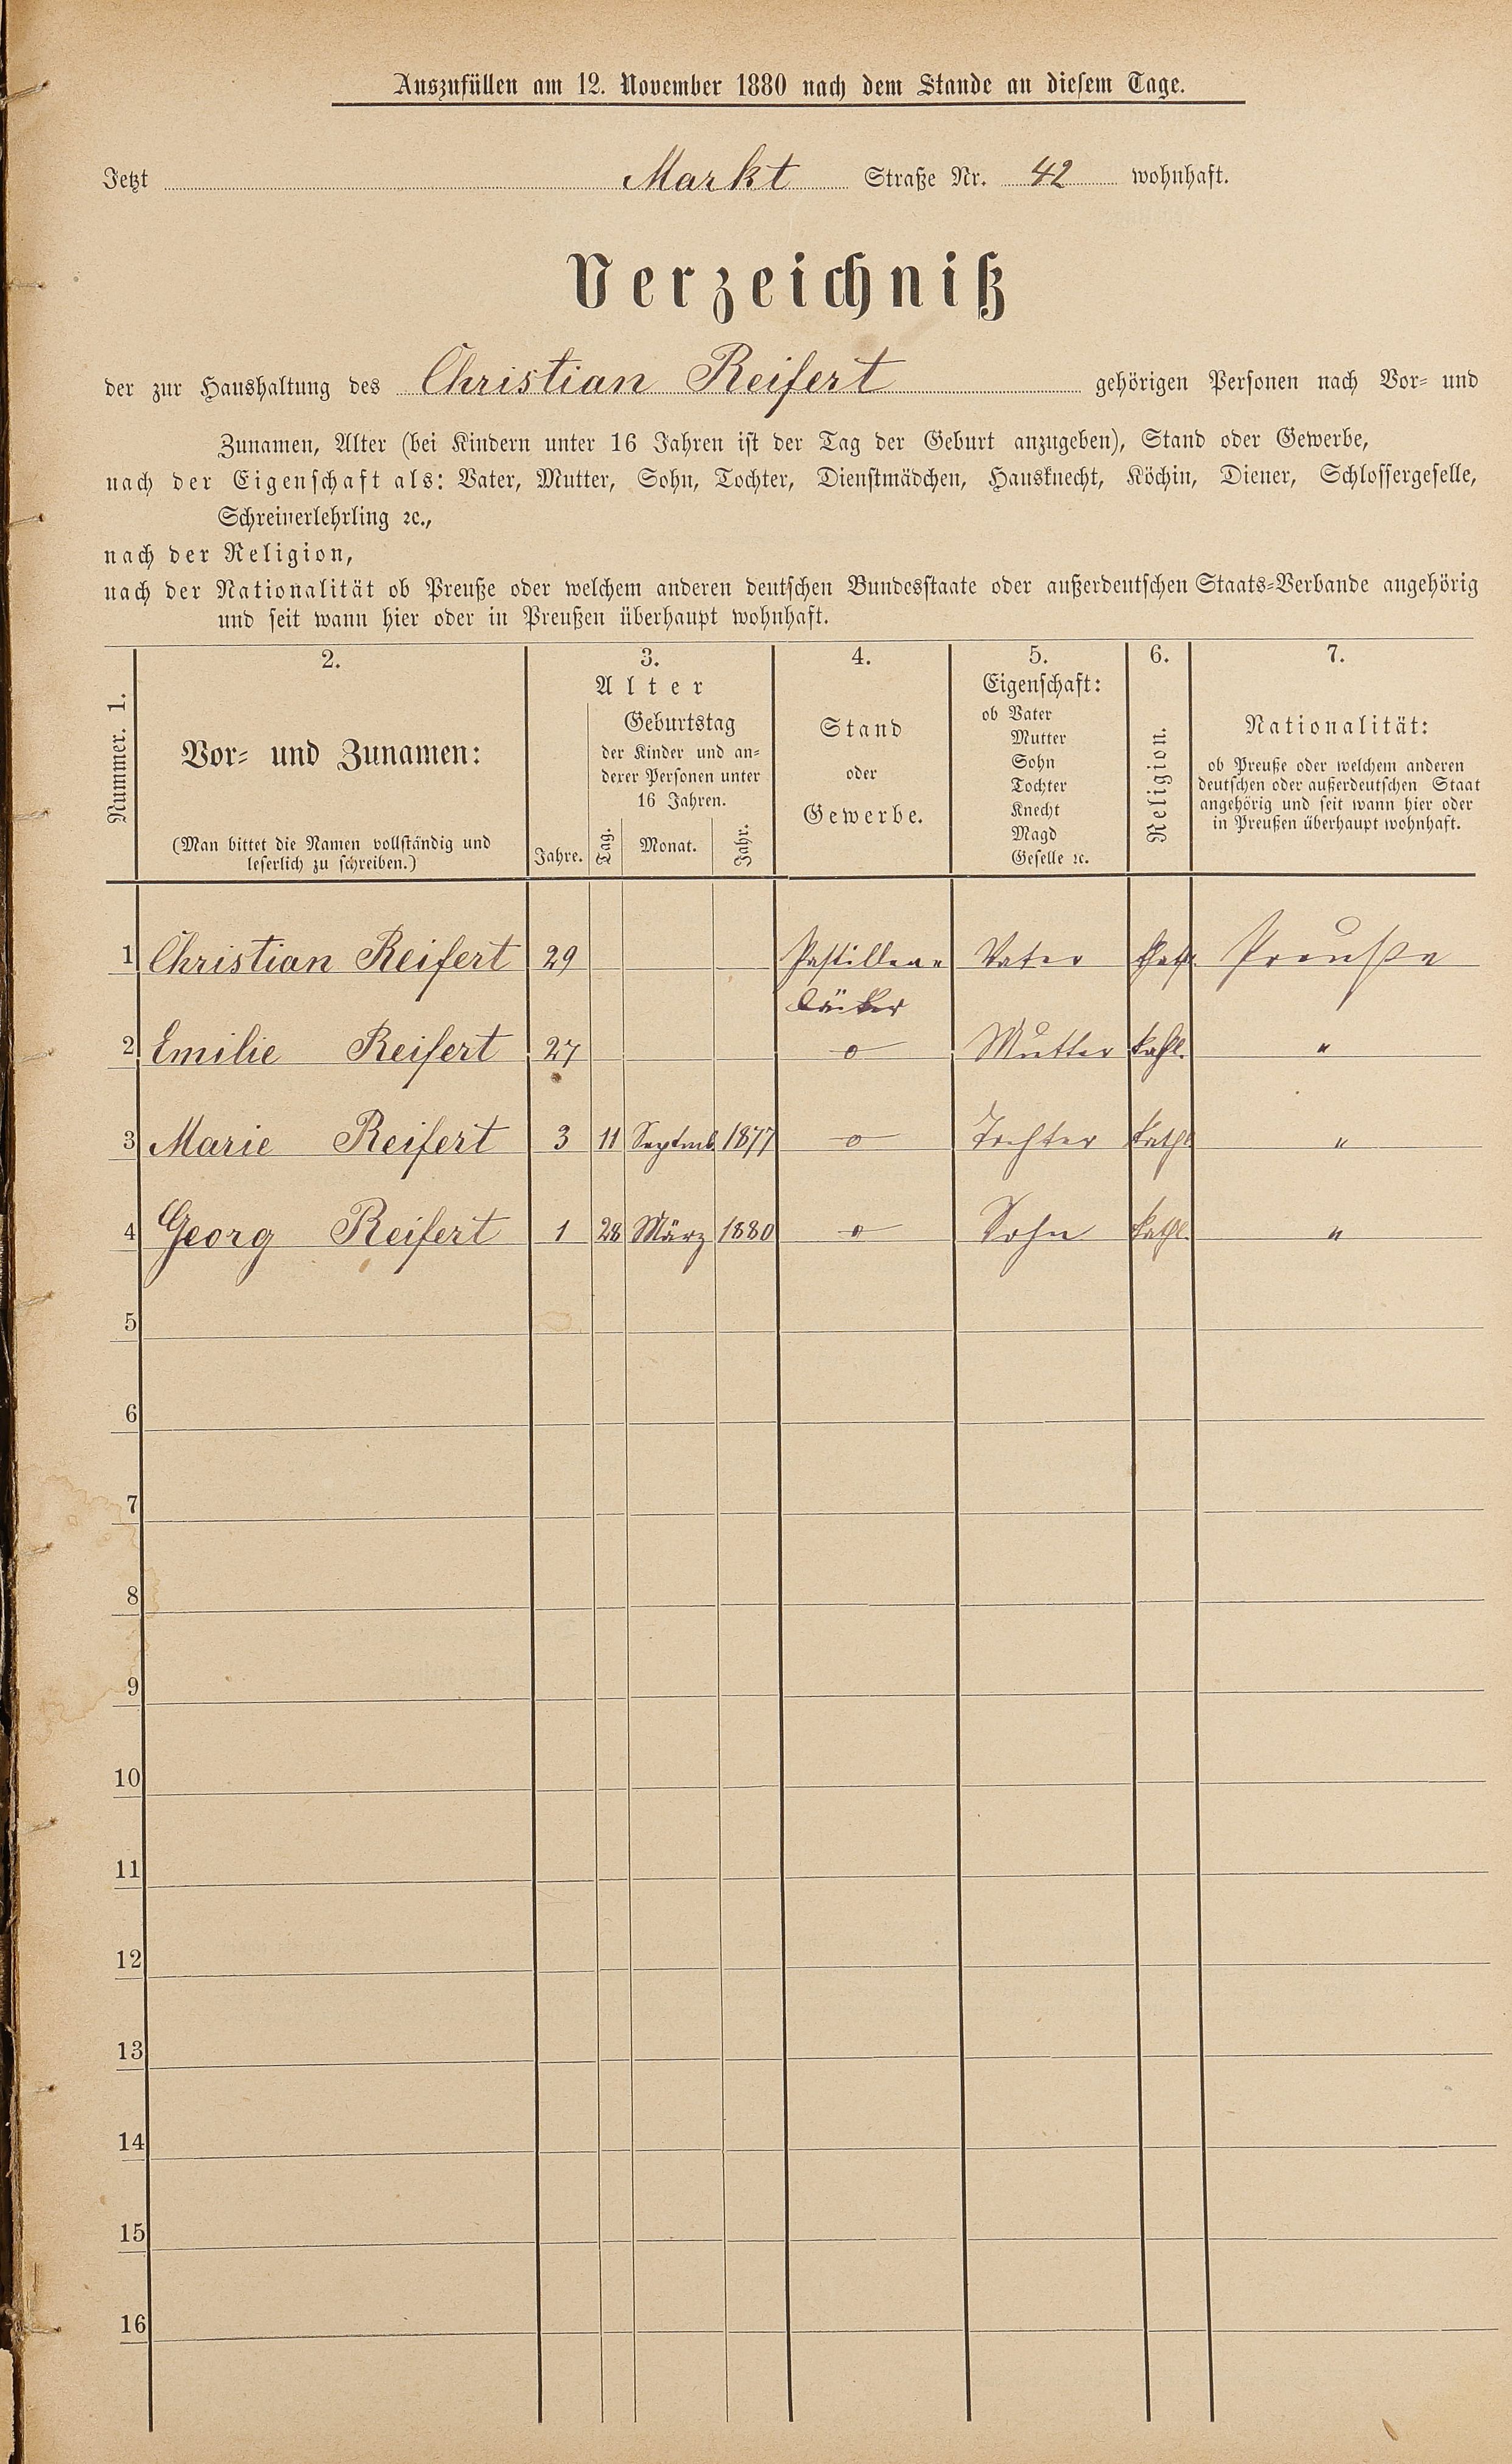 Auszufüllen am 12. November 1880 nach dem Stande an diesem Tage.
Jetzt Markt Straße Nr. 42 wohnhaft.
Verzeichniß
der zur Haushaltung des Christian Reifert gehörigen Personen nach Vor- und
Zunamen, Alter (bei Kindern unter 16 Jahren ist der Tag der Geburt anzugeben), Stand oder Gewerbe,
nach der Eigenschaft als: Vater, Mutter, Sohn, Tochter, Dienstmädchen, Hausknecht, Köchin, Diener, Schlossergeselle,
Schreinerlehrling ꝛc.,
nach der Religion,
nach der Nationalität ob Preuße oder welchem anderen deutschen Bundesstaate oder außerdeutschen Staats-Verbande angehörig
und seit wann hier oder in Preußen überhaupt wohnhaft.
Nummer. 1.
2.
Vor- und Zunamen:
(Man bittet die Namen vollständig und
leserlich zu schreiben.)
3.
Alter
Jahre.
Geburtstag
der Kinder und an-
derer Personen unter
16 Jahren.
Tag. Monat. Jahr.
4.
Stand
oder
Gewerbe.
5.
Eigenschaft:
ob Vater
Mutter
Sohn
Tochter
Knecht
Magd
Geselle ꝛc.
6.
Religion.
7.
Nationalität:
ob Preuße oder welchem anderen
deutschen oder außerdeutschen Staat
angehörig und seit wann hier oder
in Preußen überhaupt wohnhaft.
1 Christian Reifert 29 Pastillen Vater Preuße
bäcker
2 Emilie Reifert 27 o Mutter kathl. "
3 Marie Reifert 3 11 Septmb. 1877 o Tochter kathl "
4 Georg Reifert 1 28 März 1880 o Sohn kathl. "
5
6
7
8
9
10
11
12
13
14
15
16